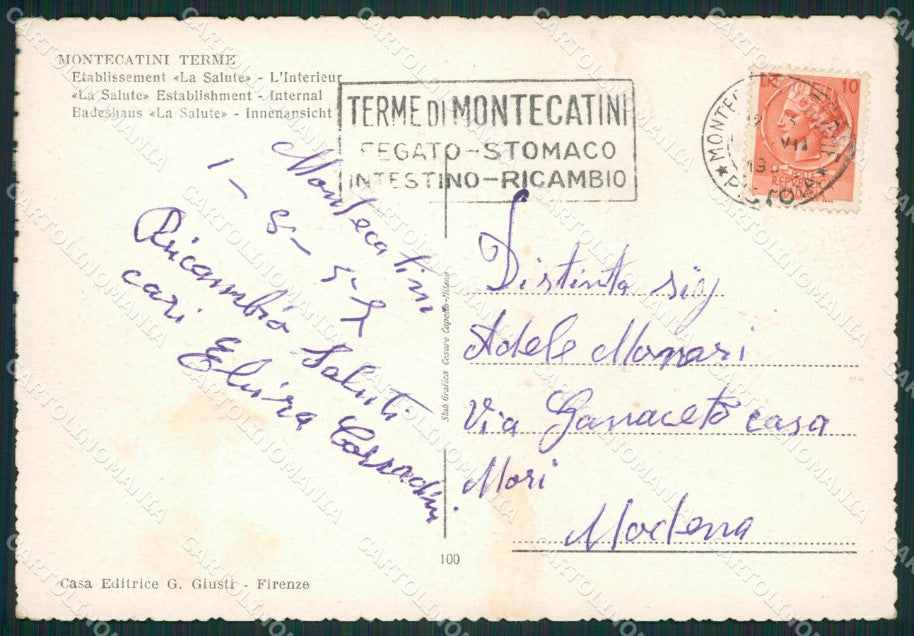 MONTECATINI TERME
Etablissement «La Salute» - L'Interieur
«La Salute» Establishment - Internal
Badeshaus «La Salute» - Innenansicht
TERME DI MONTECATINI
FEGATO-STOMACO
INTESTINO-RICAMBIO
LIRE 10
PISTOIA
Montecatini
1-5-52
Ricambio Saluti
cari
Elvira Corradini
Distinta sig
Adele Monari
Via Ganaceto casa
Mori
Modena
Stab. Grafico Cesare Capello-Milano
100
Casa Editrice G. Giusti - Firenze
CARTOLINOMANIA